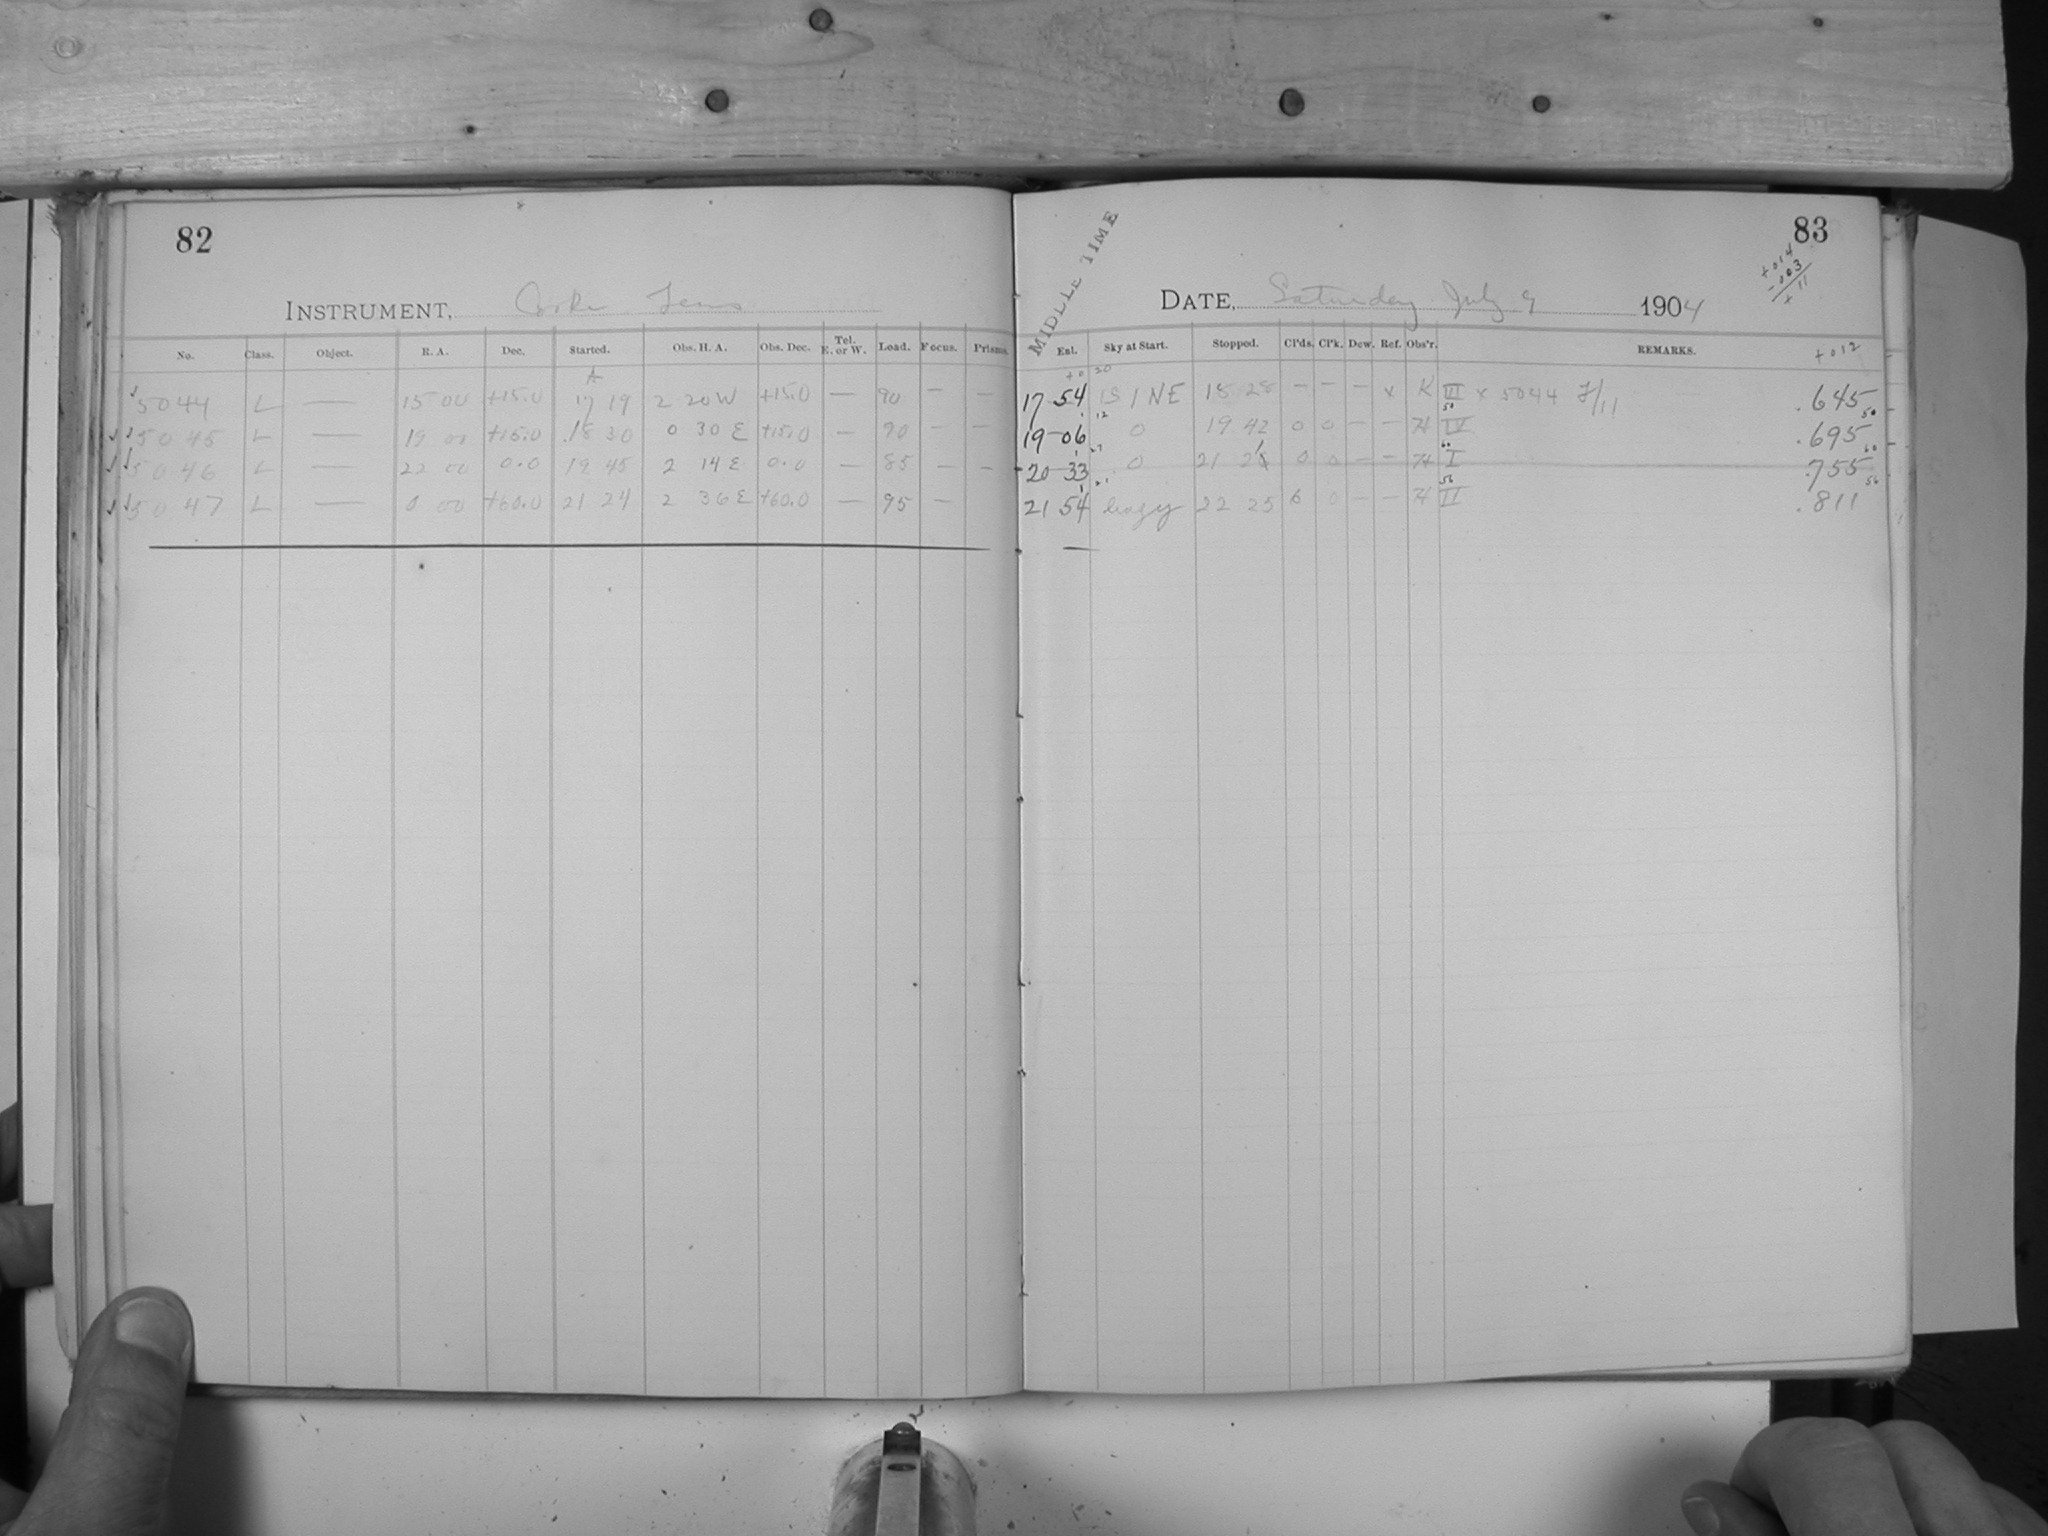 82
INSTRUMENT, Cooke Lens
No. Class. Object. R. A. Dec. Started. Obs. H. A. Obs. Dec. Tel. E. or W. Load. Focus. Prisms.
5044 L — 15 00 +15.0 17 19 2 20 W +15.0 — 90 — —
5045 L — 19 00 +15.0 18 30 0 30 E +15.0 — 90 — —
5046 L — 22 00 0.0 19 45 2 14 E 0.0 — 85 — —
5047 L — 0 00 +60.0 21 24 2 36 E +60.0 — 95 —
83
+014
-.003
+11
MIDDLE TIME
DATE, Saturday July 9 1904
Enl. Sky at Start. Stopped. Cl'ds. Cl'k. Dew. Ref. Obs'r. REMARKS. +012
17 54 1S 1 NE 18 28 — — — x K III x 5044 7/11 .645
19 06 0 19 42 0 0 — — H IV .695
20 33 0 21 0 0 — — H I .755
21 54 hazy 22 25 6 0 — — H II .811